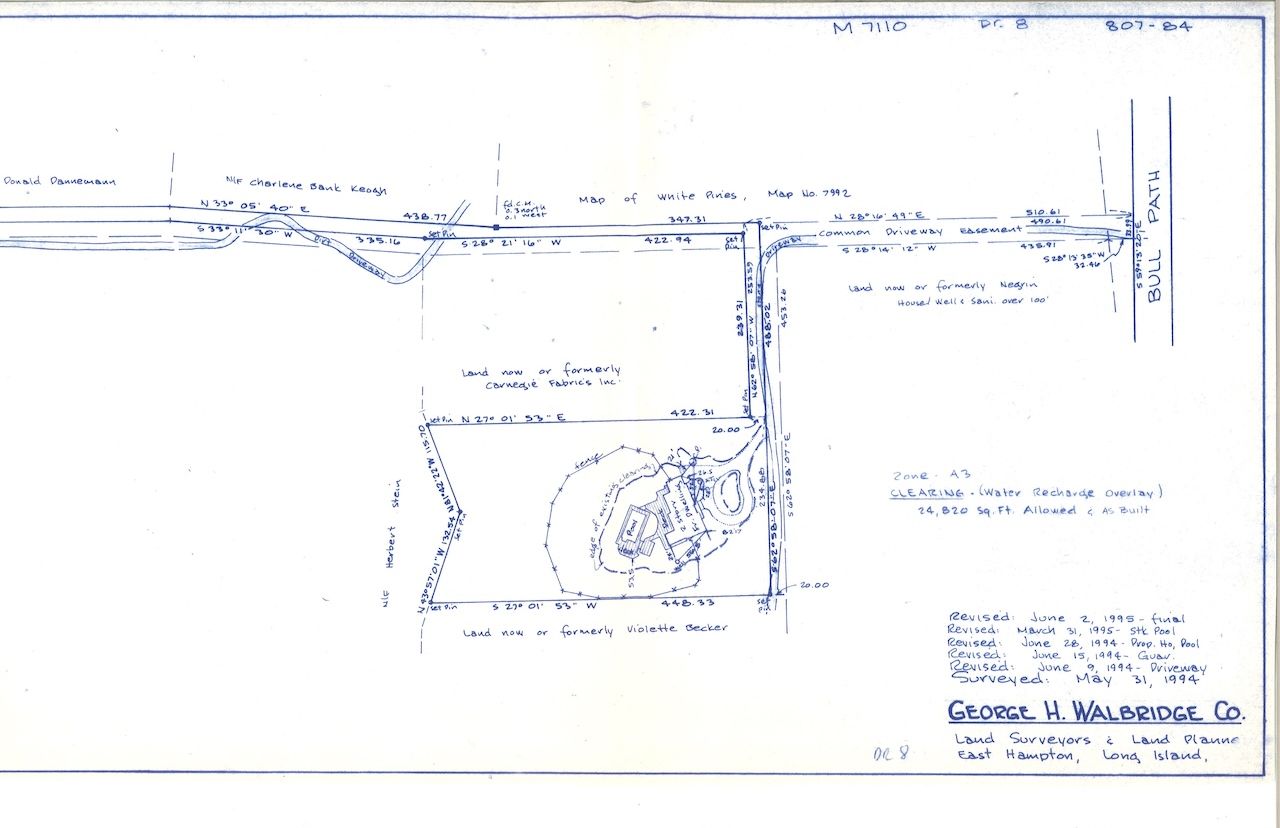 M 7110
Dr. 8
807-84
Donald Dannemann
N/F Charlene Bank Keogh
Map of White Pines, Map No. 7992
N 33° 05' 40" E
438.77
fd.C.M.
0.3 north
0.1 west
347.31
Set Pin
N 28° 16' 49" E
510.61
490.61
S 33° 11' 30" W
335.16
Set Pin
S 28° 21' 16" W
422.94
Set Pin
Common Driveway Easement
S 28° 14' 12" W
435.91
S 28° 13' 35" W
32.46
S 59° 13' 20" E
BULL PATH
Dirt
Driveway
Driveway
Land now or formerly Negrin
House/Well & Sani. over 100'
253.59
239.31
N 62° 58' 07" W
488.02
453.26
Land now or formerly
Carnegie Fabrics Inc.
Set Pin
Set Pin
N 27° 01' 53" E
422.31
20.00
N 81° 42' 22" W 115.70
fence
edge of existing clearing
Pool
Deck
2 Story
Fr. Dwelling
234.88
S 62° 58' 07" E
S 62° 58' 07" E
Zone - A3
CLEARING - (Water Recharge Overlay)
24,820 Sq.Ft. Allowed & As Built
N/F Herbert Stein
Set Pin
N 43° 57' 01" W 132.54
53.5
Set Pin
S 27° 01' 53" W
448.33
Set Pin
20.00
Land now or formerly Violette Becker
Revised: June 2, 1995 - final
Revised: March 31, 1995 - Stk Pool
Revised: June 28, 1994 - Prop. Ho, Pool
Revised: June 15, 1994 - Guar.
Revised: June 9, 1994 - Driveway
Surveyed: May 31, 1994
GEORGE H. WALBRIDGE CO.
Land Surveyors & Land Planne
East Hampton, Long Island,
DR 8